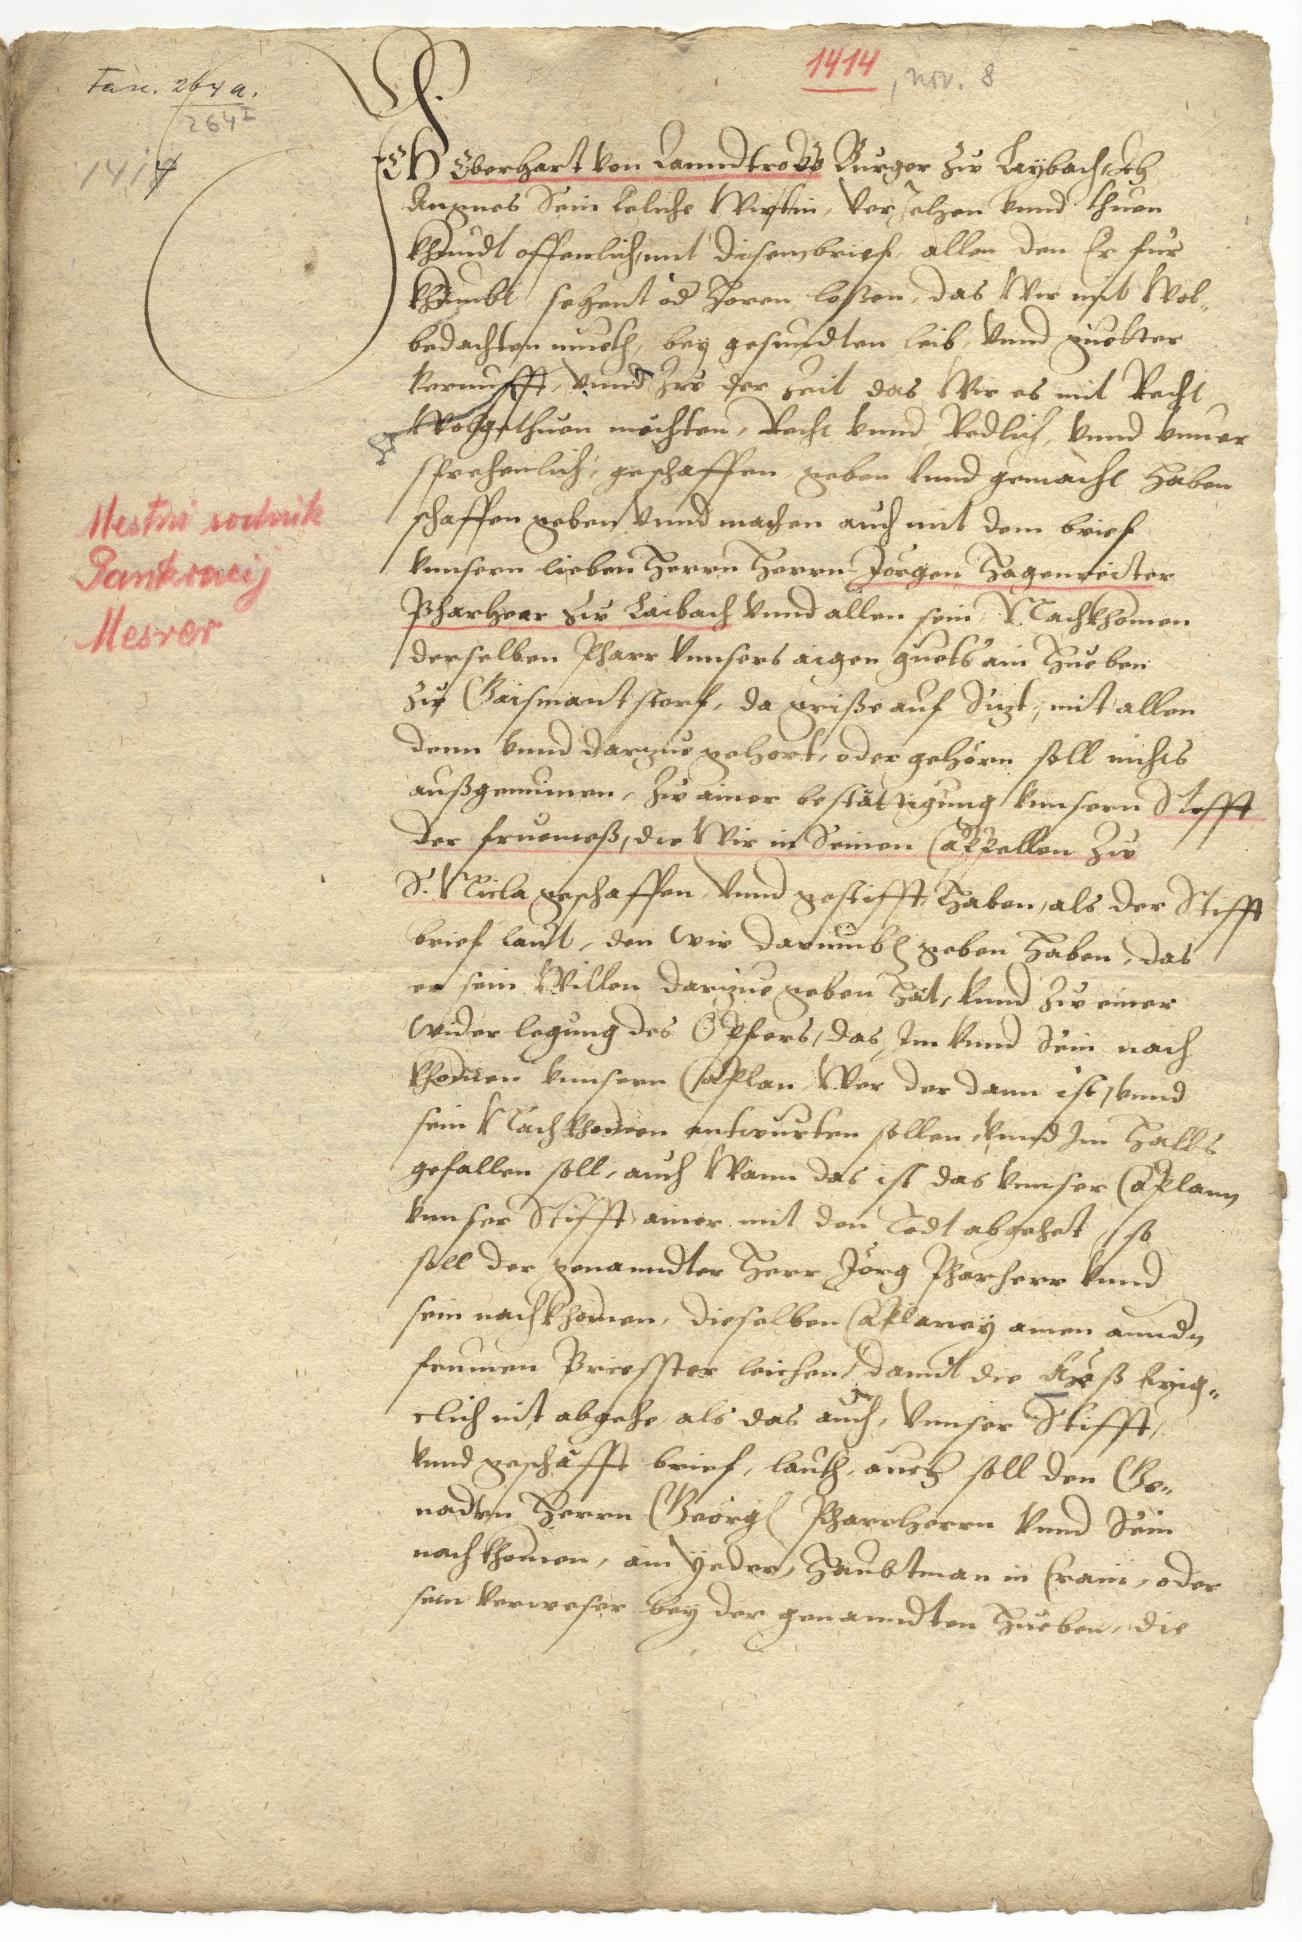 1414, Nov. 8
Fasc. 264 a.
264 I
1414
Mestni sodnik
Pankracij
Mesrer
ICH Eberhart von Lanndtrobs Burger zu Laybach, Ich
Angnes Sein Eeliche Wirtin, Veriehen vnnd thuen
khundt offenlich, mit disem brief, allen den Er für
khumbt, sehent od Hören leßen, das Wir mit Wol-
bedachten mueth, bey gesundten leib, vnnd guetter
Vernunfft, vnnd zu der Zeit das Wir es mit Recht
Wolgethuen möchten, Recht vnnd Redlich, vnnd vnuer
sprehenlich, geschaffen geben vnnd gemacht haben
schaffen geben vnnd machen auch mit dem brief
vnnsern lieben Herrn Herrn Jörgen Hagenreiter
Pharherr zu Laibach vnnd allen sein Nachkhomen
derselben Pharr vnnsers aigen guets ain Hueben
zu Gaismantstorf, da Griße auf Sizt, mit allen
denn vnnd darzue gehort, oder gehörn soll nichts
außgenumen, zu ainer bestättigung vnnsern Stifft
der fruemeß, die Wir in Seinen Cappellen zu
S. Nicla geschaffen vnnd gestifft haben, als der Stifft
brief laut, den wir darumb geben haben, das
er sein Willen darzue geben hat, vnnd zu einer
wider legung des Opfers, das Im vnnd Sein nach
khomen vnnsern Caplan Wer der dann ist, vnnd
sein Nachkhomen antwurten sollen, vnnd Im Halbs
gefallen soll, auch Wann das ist das vnnser Caplann
vnnser Stifft ainer mit den Todt abgehet, so
soll der genanndter Herr Jörg Pharherr vnnd
sein nachkhomen, dieselben Caplaney amen anndn
frumen Priesster leichen, damit die Meß Ewig-
clich nit abgehe, als das auch, vnnser Stifft,
vnnd geschäfft brief, lauth, auch soll den Ge-
nadten Herrn Georg Pharrherrn vnnd Sein
nachkhomen, ain Yeder, Haubtman in Crain, oder
sein Verweser bey der genanndten Hueben, die